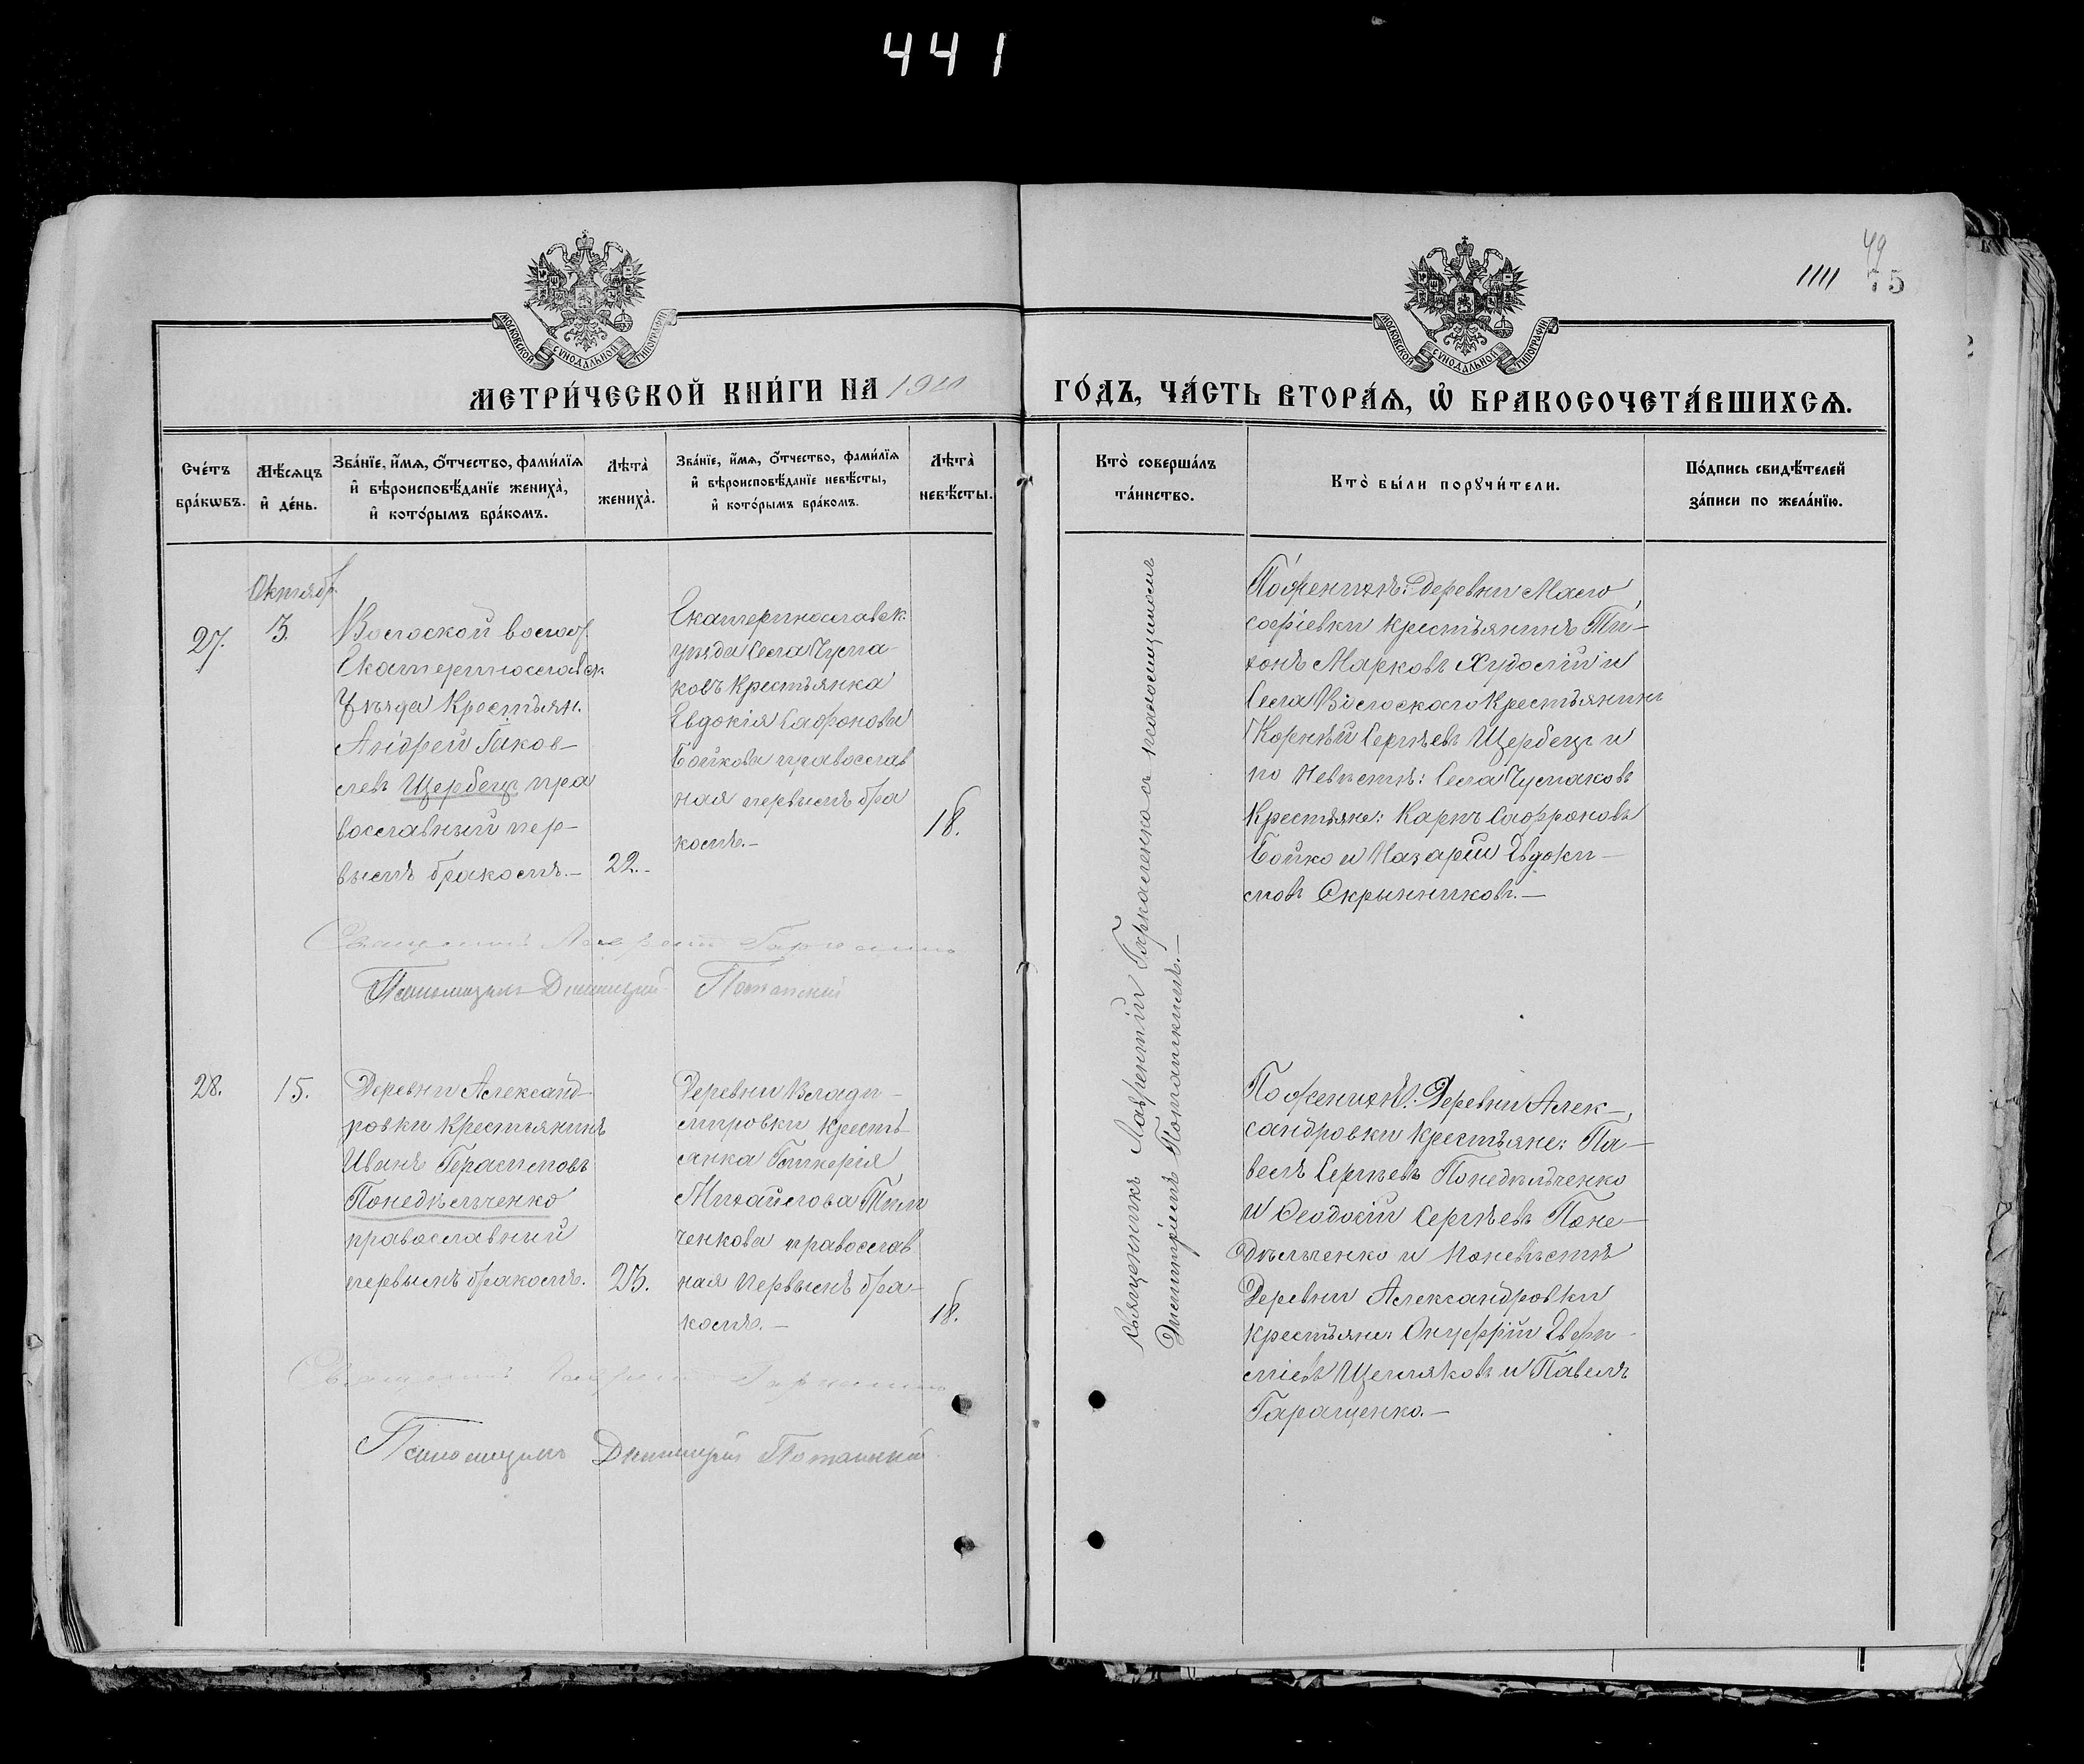 441
49
1111 75
МОСКОВСКОЙ СѴНОДАЛЬНОЙ ТИПОГРАФІИ
МОСКОВСКОЙ СѴНОДАЛЬНОЙ ТИПОГРАФІИ
МЕТРИ́ЧЕСКОЙ КНИ́ГИ НА
ГО́ДЪ, ЧА́СТЬ ВТОРА́Ѧ, Ѡ҆ БРАКОСОЧЕТА́ВШИХСѦ.
Сче́тъ бра́кѡвъ.
Мѣ́сяцъ и҆ де́нь.
Зва́нїе, и҆́мѧ, ѻ҆́тчество, фами́лїѧ
и҆ вѣроисповѣ́данїе жениха̀,
и҆ кото́рымъ бра́комъ.
Лѣта̀ жениха̀.
Зва́нїе, и҆́мѧ, ѻ҆́тчество, фами́лїѧ
и҆ вѣроисповѣ́данїе невѣ́сты,
и҆ кото́рымъ бра́комъ.
Лѣта̀ невѣ́сты.
Кто̀ соверша́лъ
та́инство.
Кто̀ бы́ли порꙋчи́тели.
По́дпись свидѣ́телей
за́писи по жела́нїю.
27.
Октябр.
3.
Екатеринославск
Уѣзда Крестьян.
Андрей Іаков-
левъ Щербецъ пра
вославный пер-
вымъ бракомъ.-
22.-
Екатеринославск.
уѣзда Села Чума-
ковъ Крестьянка
Евдокія Сафонова
Бойкова православ
ная первымъ бра
комъ.-
18.
Священникъ Лаврентій Гаркаленко съ псаломщикомъ
Димитріемъ Потапкимъ.-
По женихѣ: Деревни Мало
софіевки крестьянинъ Ти-
хонъ Марковъ Худолій и
Села Волоскаго Крестьянинъ
Корнѣй Сергѣевъ Щербецъ и
по Невѣстѣ: Села Чумаковъ
Крестьяне: Карпъ Сафроновъ
Бойко и Назарій Евдоки-
мовъ Скрынниковъ.-
Псаломщикъ Димитрій Потапкій
28.
15.
Деревни Александ-
ровки Крестьянинъ
Иванъ Герасимовъ
Понедѣльченко
православный
первымъ бракомъ.
23.
Деревни Влади-
мировки Кресть
янка Гликерія
Михайлова
ченкова православ
ная Первымъ бра-
комъ.-
18.
По женихѣ: Деревни Алек-
сандровки Крестьяне: Па-
велъ Сергѣевъ Понедѣльченко
и Феодосій Сергѣевъ Поне-
дѣльченко и По невѣстѣ
Деревни Александровки
крестьяне: Онуфрій Евфи-
міевъ и Павелъ
Гаращенко.-
Псаломщикъ Димитрій Потапкій